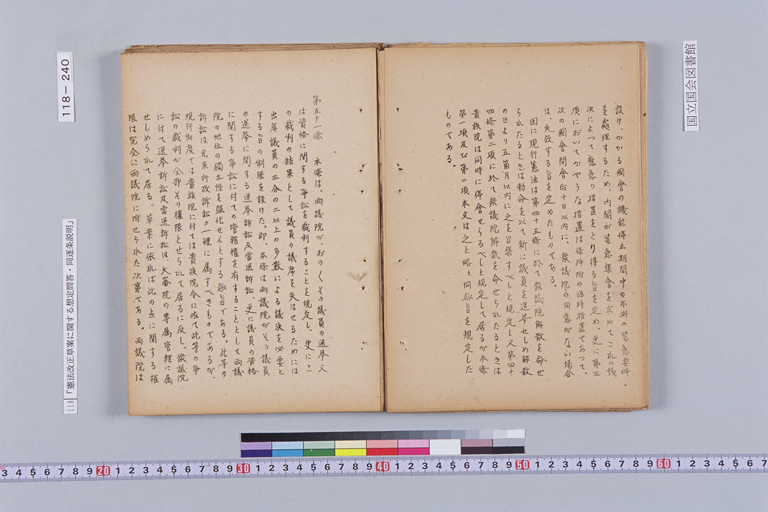 設け、かかる國會の機能停止期間中の不測の緊急事件
を處理するため、内閣が緊急集會を求めてこれの議
決によつて緊急の措置をとり得る旨を定め、更に第三
項においてかやうな措置は條件附の臨時措置であつて、
次の國會開會后十日以内に、衆議院の同意がない場合
は、失效する旨を定めたものである。
因に現行憲法は第四十五條に於て衆議院解散を命せ
られたるときは勅命を以て新に議員を選擧せしめ解散
の日より五箇月以内に之を召集すべしと規定し又第四十
四條第二項に於て衆議院解散を命せられたるときは
貴族院は同時に停會せらるべしと規定して居るが本條
第一項及び第二項本文は之と略々同趣旨を規定した
ものである。
第五十一條 本條は、両議院が、おのおのその議員の選擧又
は資格に関する爭訟を裁判することを規定し、更にこ
の裁判の結果として議員の議席を失はせるためには
出席議員の三分の二以上の多數による議決を必要と
する旨の制限を設けた。即、本條は両議院がその議員
の選擧に関する選擧訴訟及當選訴訟、更に議員の資格
に関する爭訟に付ての管轄權を有することとして両議
院の地位の獨立性を強化せんとする趣旨である。此等の
訴訟は元來行政訴訟の一種に属すべきものであるが、
現行制度では貴族院に付ては貴族院令に依て此等の爭
訟の裁判が全部その權限とせられて居るに反し、衆議院
に付て選擧訴訟及當選訴訟は大審院の専属管轄に属
せしめられて居る。草案に依れば此の点に関する權
限は完全に両議院に附せられた次第である。両議院は
118-240
118 「憲法改正草案に関する想定問答・同逐条説明」
国立国会図書館
3 4 5 6 7 8 9 20 1 2 3 4 5 6 7 8 9 30 1 2 3 4 5 6 7 8 9 40 1 2 3 4 5 6 7 8 9 50 1 2 3 4 5 6 7 8 9 60 1 2 3 4 5 6 7